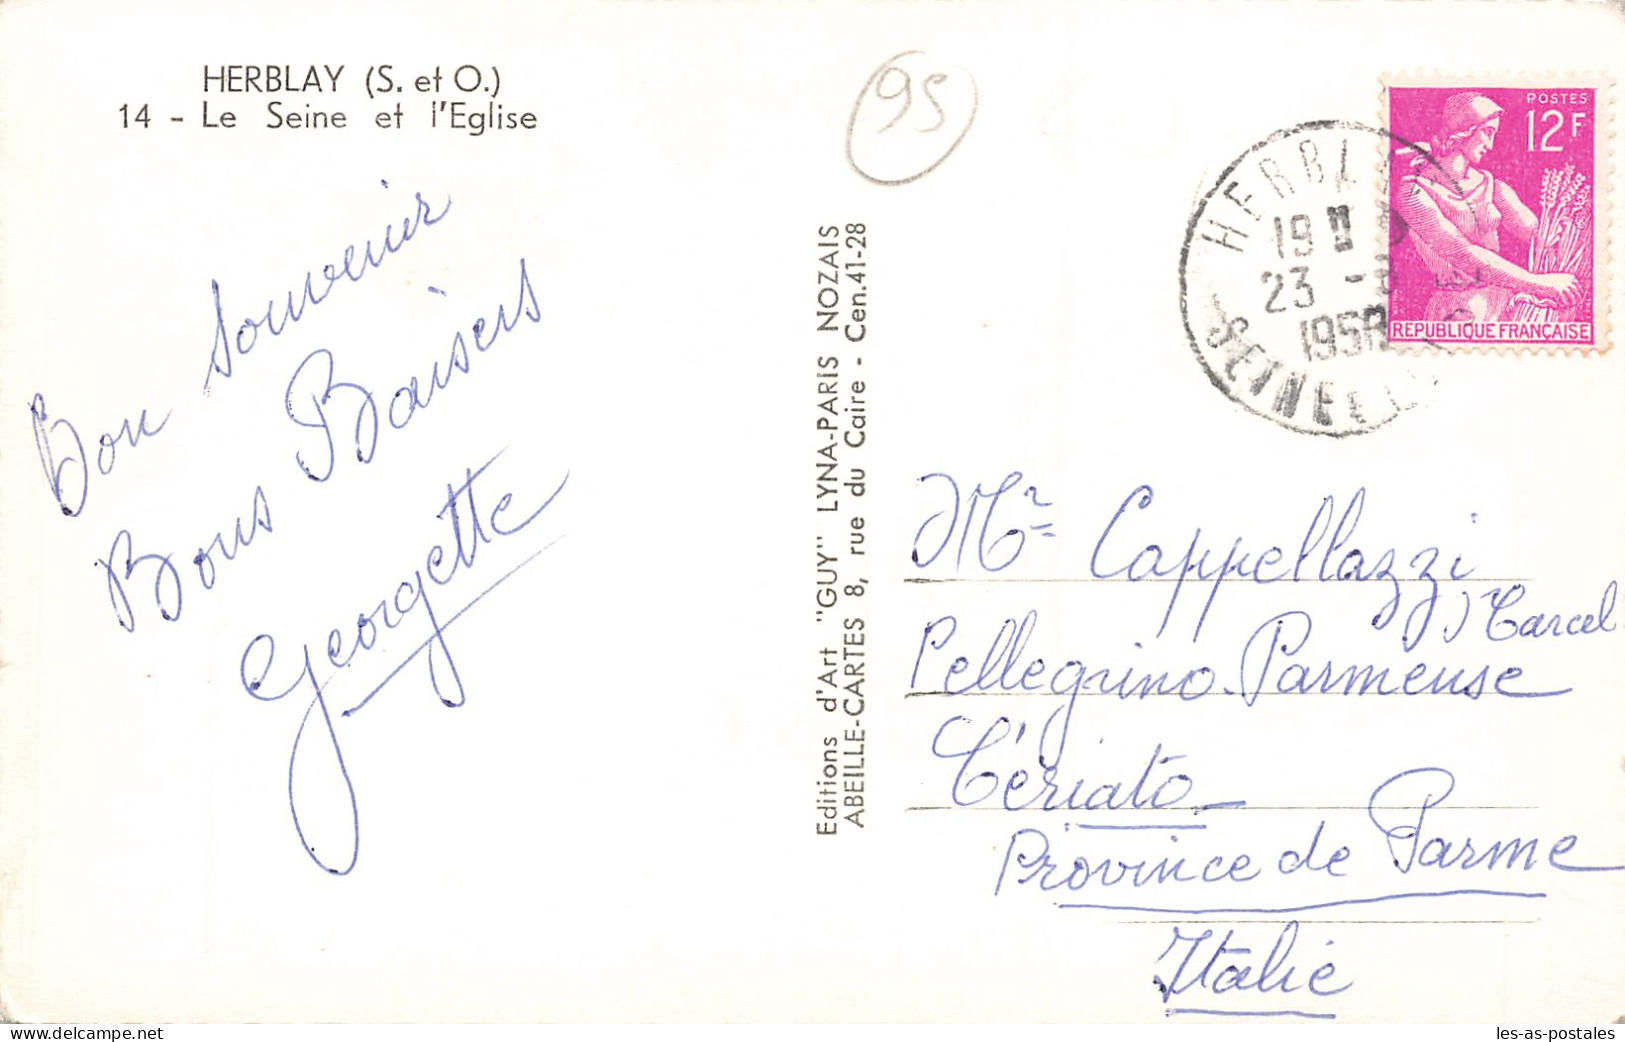 HERBLAY (S. et O.)
14 - Le Seine et l'Eglise
95
Bon Souvenir
Bons Baisers
Georgette
Editions d'Art "GUY" LYNA-PARIS NOZAIS
ABEILLE-CARTES 8, rue du Caire - Cen.41-28
HERBLAY
19 H
23 -
195
SEINE ET
POSTES
12F
REPUBLIQUE FRANÇAISE
Mr Cappellazzi
Pellegrino Parmeuse
Cériato
Province de Parme
Italie
delcampe.net
les-as-postales